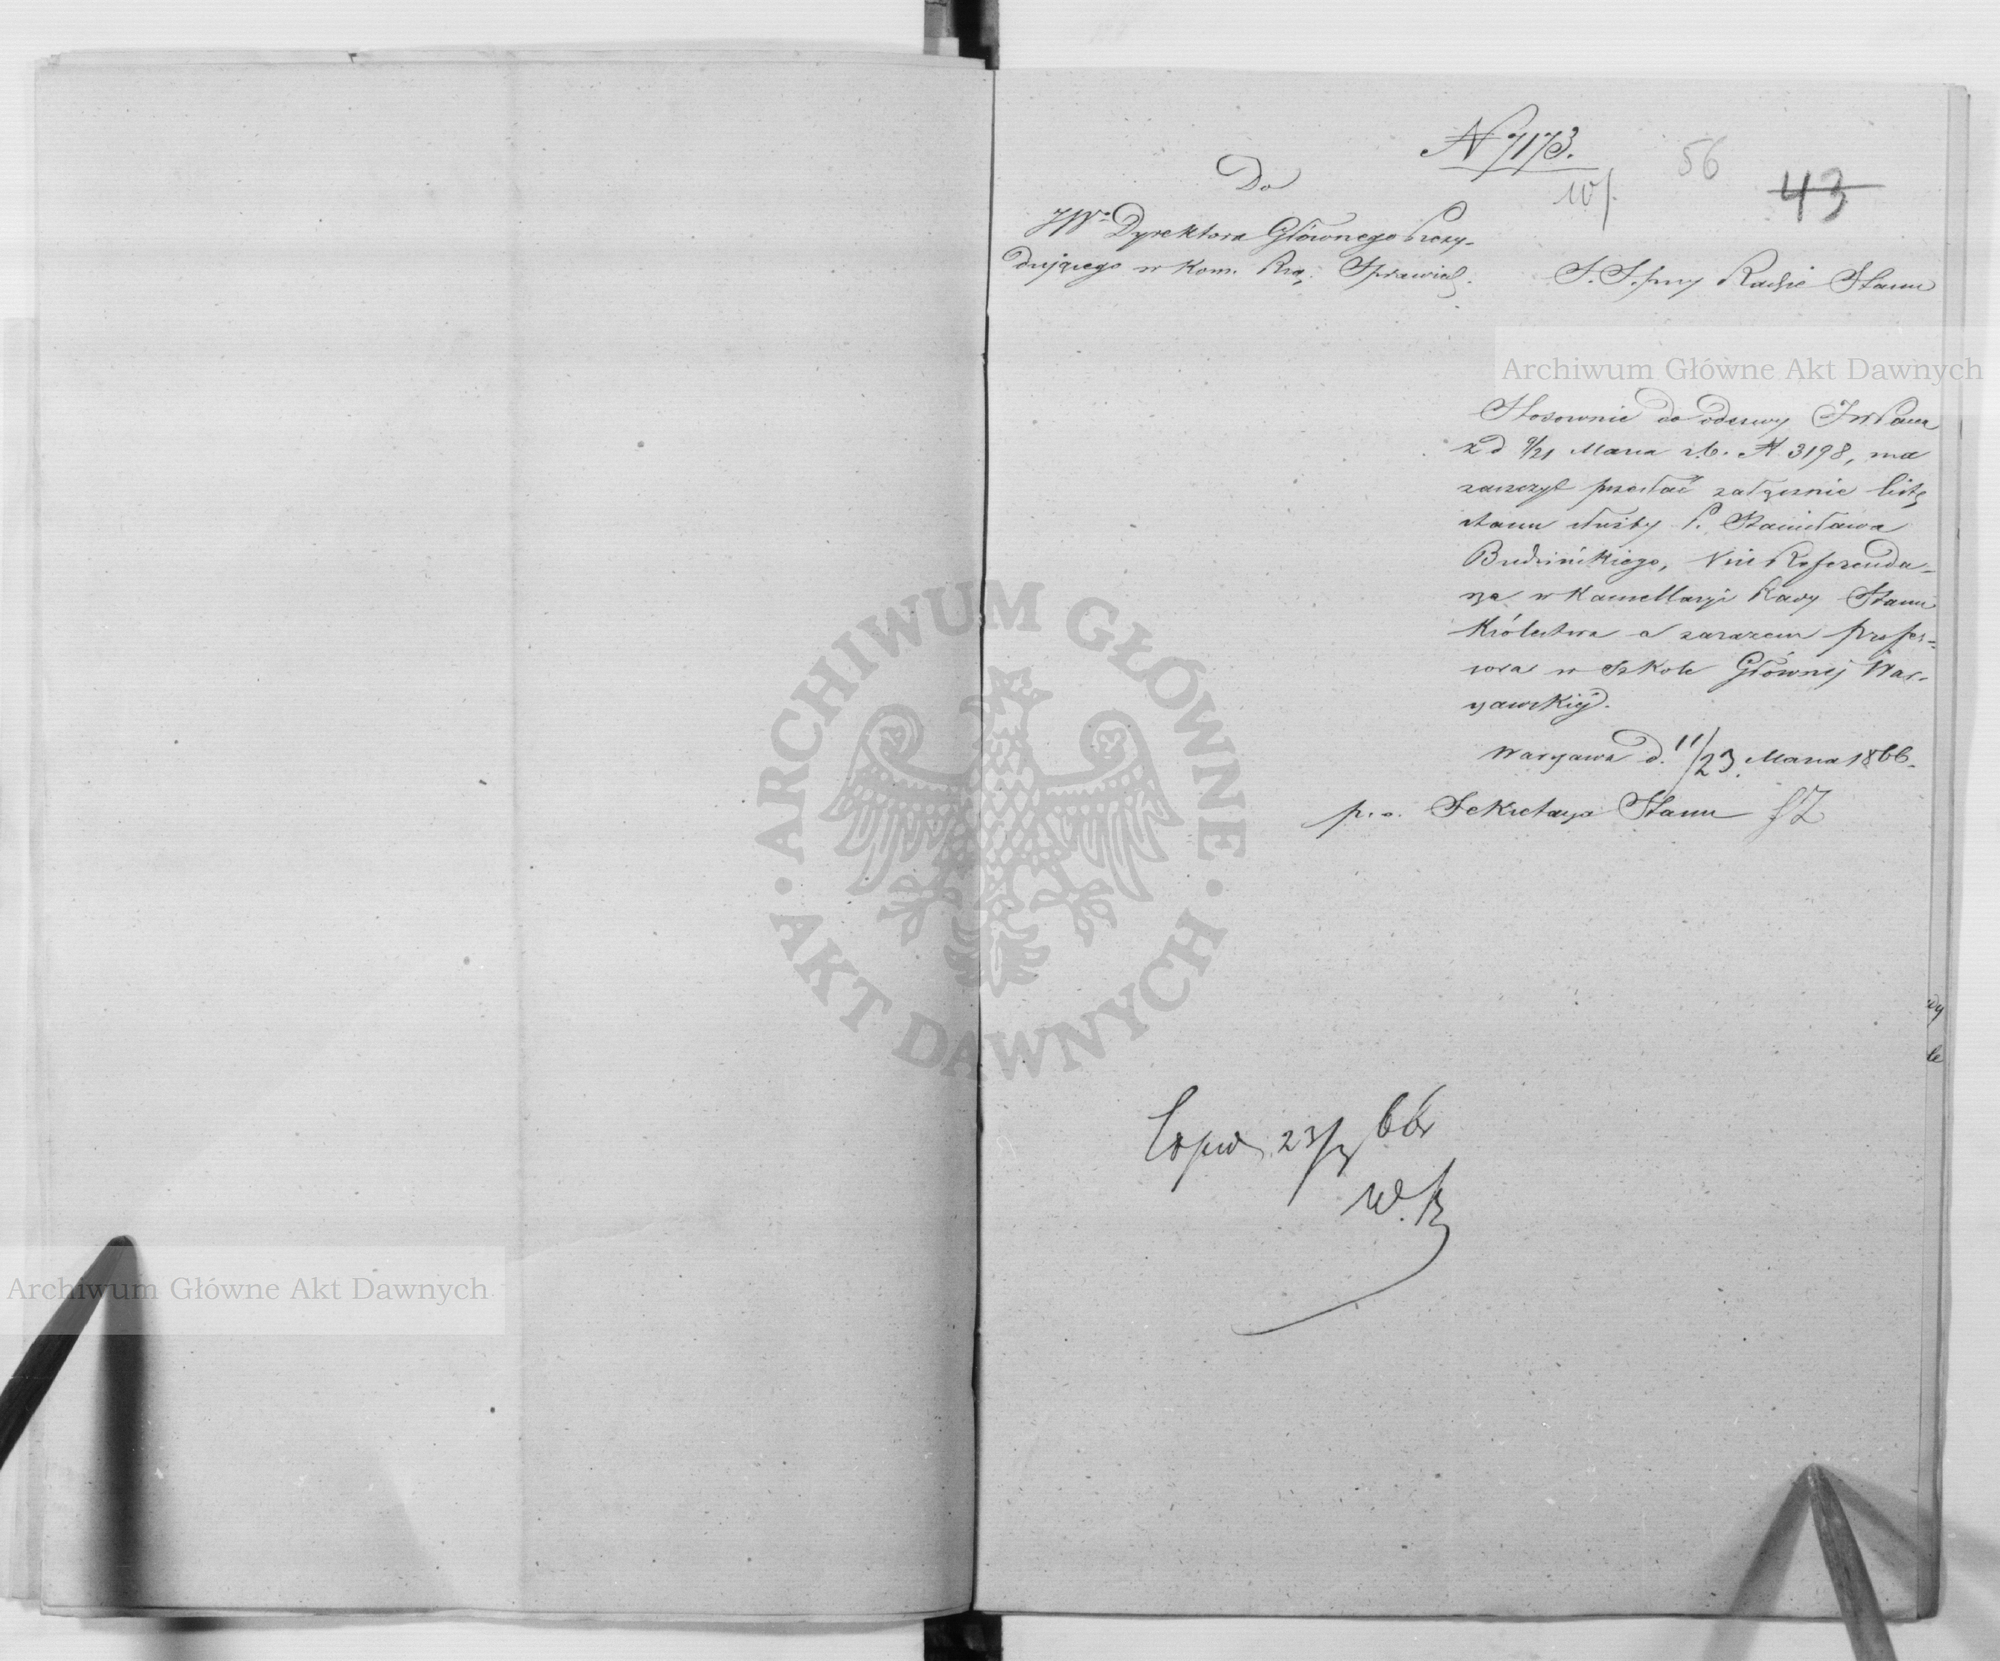 N 7173.
56
43
W/.
Do
JWo Dyrektora Głównego Prezy-
dującego w Kom. Rzą. Sprawiedl.
S. S. przy Radzie Stanu
Archiwum Główne Akt Dawnych
Stosownie do odezwy JWPana
z d 9/21 Marca r.b. N 3198, ma
zaszczyt przesłać załącznie listę
stanu służby P. Stanisława
Budzińskiego, Vice Referenda-
rza w Kancellaryi Rady Stanu
Królestwa a zarazem profes-
sora w Szkole Głównej War-
szawskiej.
Warszawa d. 11/23 Marca 1866.
p. o. Sekretarza Stanu
wy
le
23/3 66
W. K
ARCHIWUM GŁÓWNE
AKT DAWNYCH
Archiwum Główne Akt Dawnych